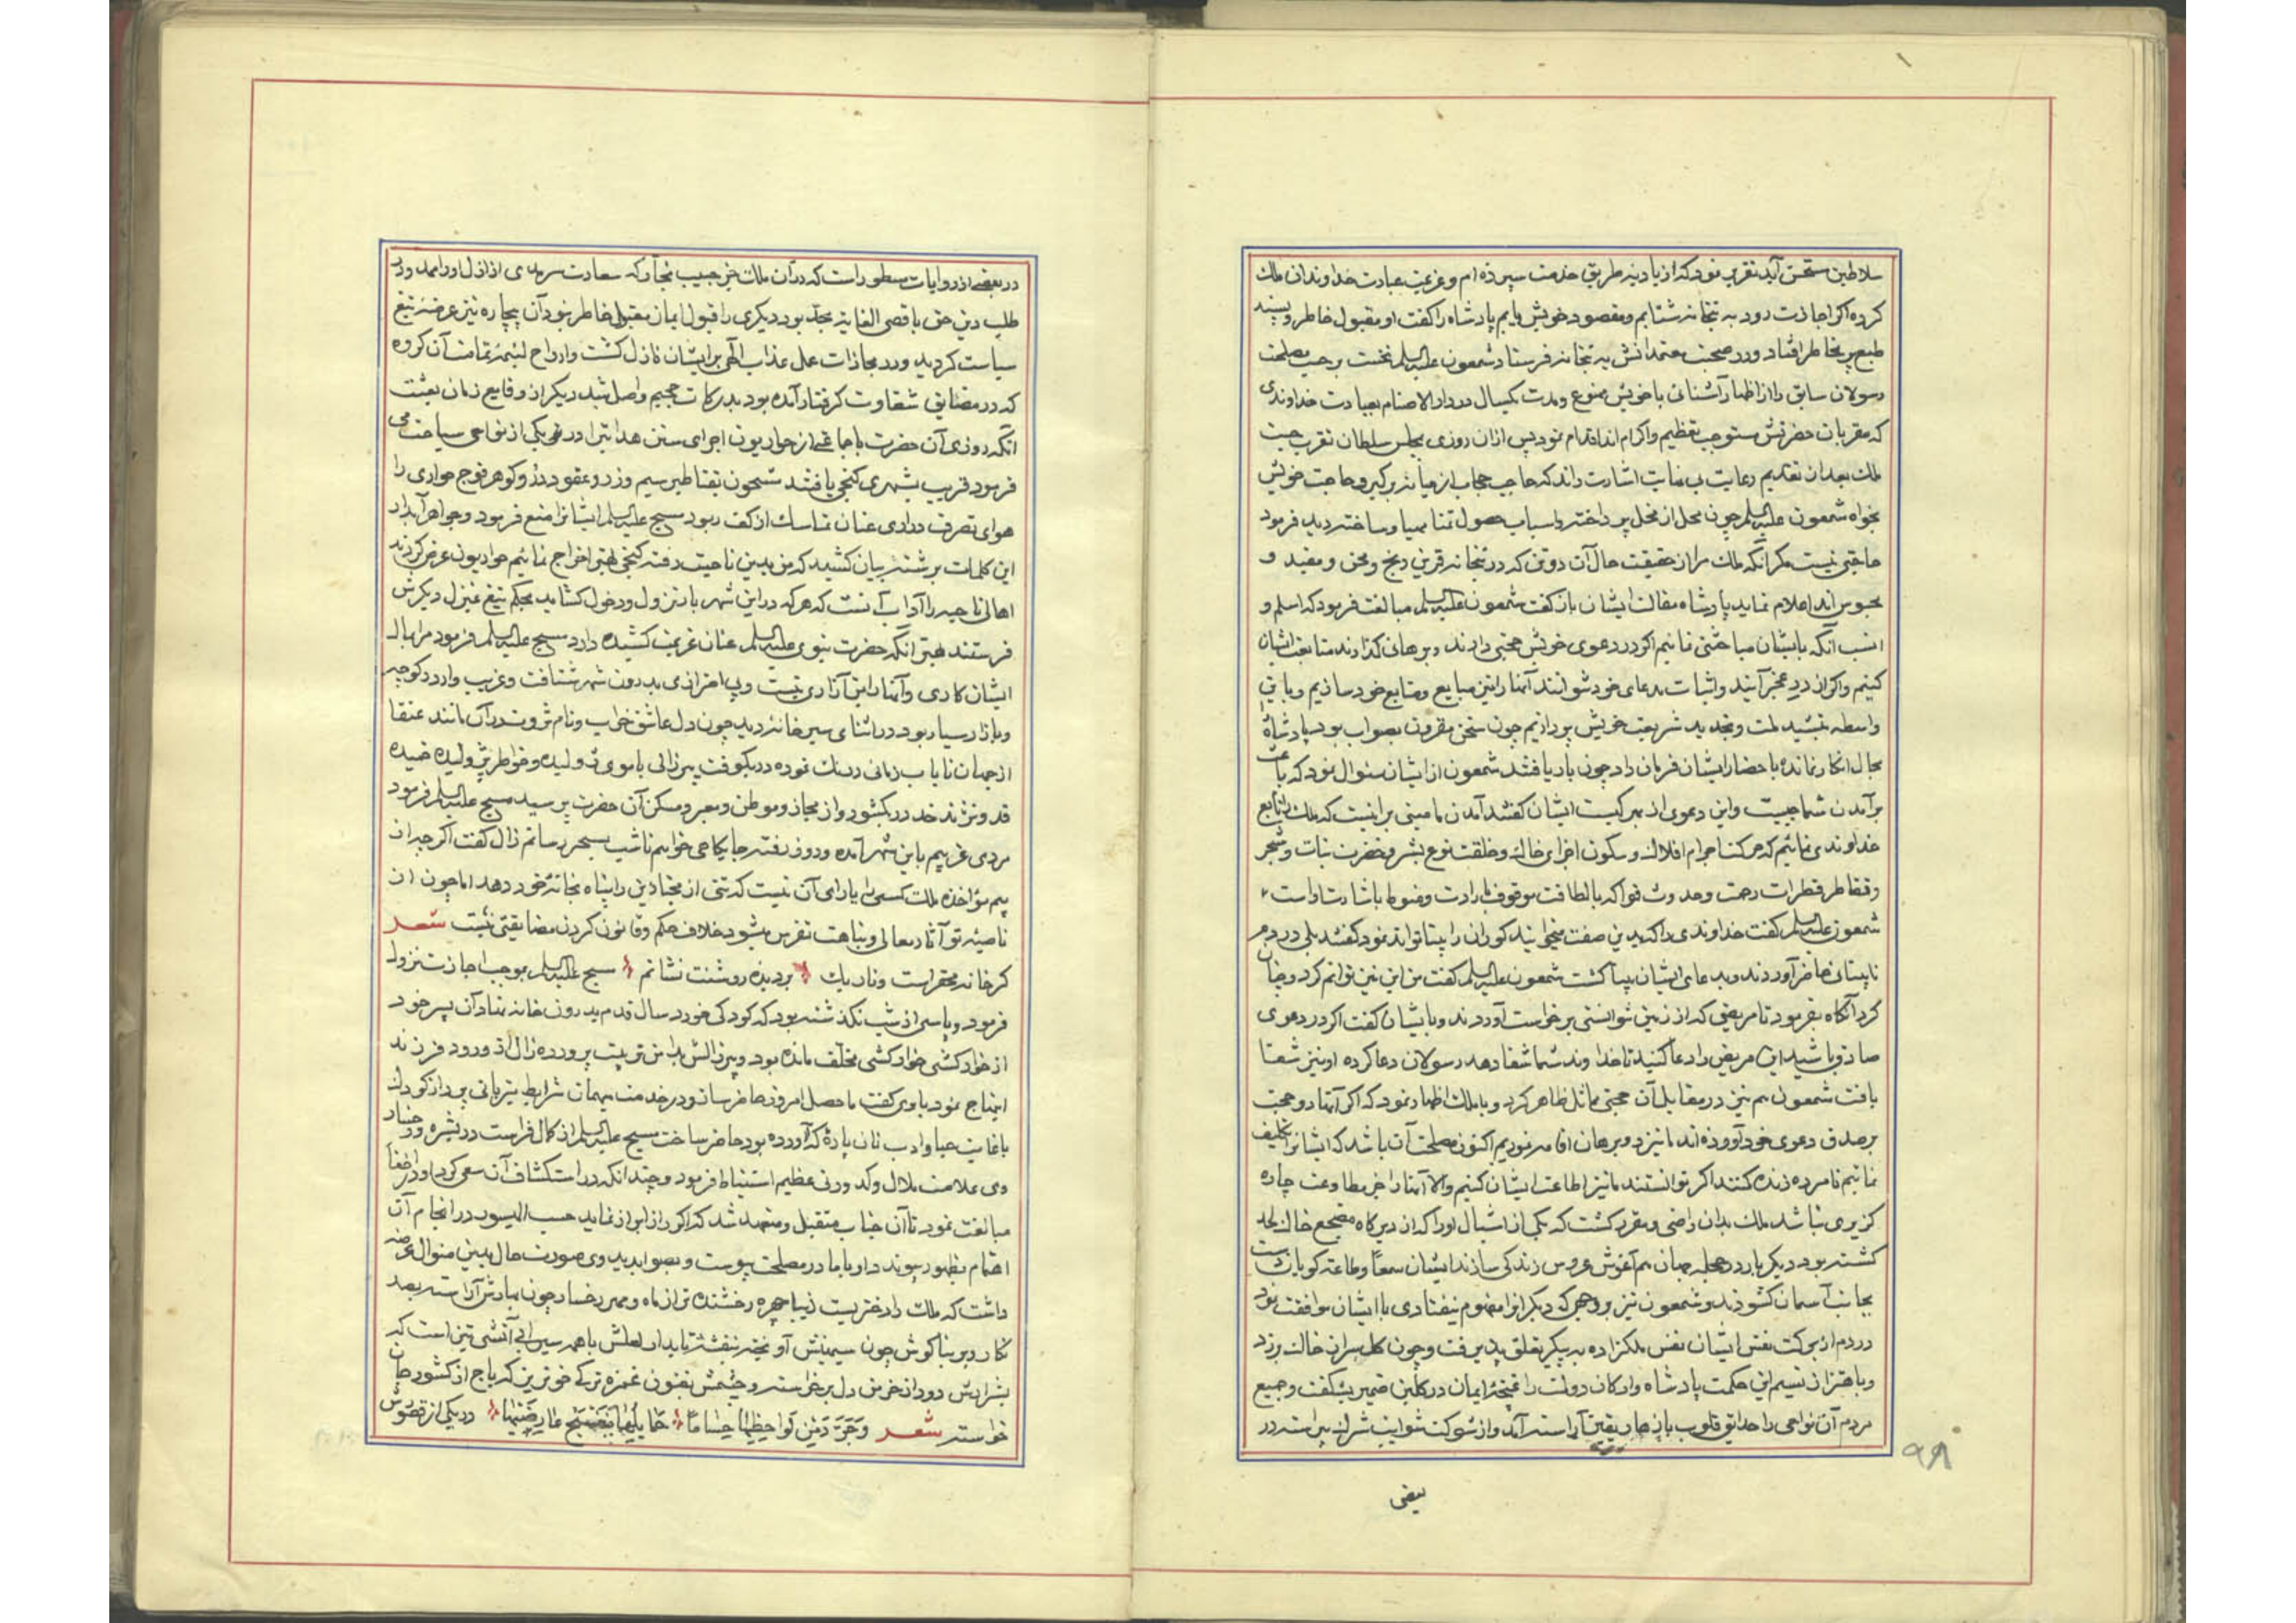 سلاطین مستحسن آید تقریر نمود که از بادیه طریق خدمت سپرده ام و عزیمت عبادت خداوندان ملک
کرده اگر اجازت رود به بتخانه شتابم و مقصود خویش یابم پادشاه را گفت او مقبول خاطر و پسند
طبع خاطر افتاد و در صحبت معتمدانش به بتخانه فرستاد شمعون علیه السلم نخست بر حسب مصلحت
رسولان سابق را از اظهار آشنائی با خویش ممنوع و مدت یکسال در دار الاصنام بعبادت خداوندی
که مقربان حضرتش مستوجب تعظیم و اکرام اند اقدام نمود پس از آن روزی بمجلس سلطان تقرب جست
ملک بعد از تقدیم رعایت بی غایت اشارت راند که حاجب حجاب از میانه برگیر و حاجت خویش
بخواه شمعون علیه السلم چون محل از مخل پرداخته و اسباب حصول تمنا مهیا و ساخته دید فرمود
حاجتی نیست مگر آنکه ملک مرا از حقیقت حال آن دو تن که در بتخانه قرین رنج و محن و مقید و
محبوس اند اعلام نماید پادشاه مقالت ایشان باز گفت شمعون علیه السلم مبالغت فرمود که اسلم و
انسب آنکه با ایشان مباحثتی نمائیم اگر در دعوی خویش حجتی دارند و برهان گذارند متابعت ایشان
کنیم و اگر از در عجز آیند و اثبات مدعای خود نتوانند آنها را نیز مبایع و متابع خود سازیم و باین
واسطه بتشیید ملت و تجدید شریعت خویش پردازیم چون سخن مقرون بصواب بود پادشاه
مجال انکار نمانده باحضار ایشان فرمان داد چون بار یافتند شمعون از ایشان سئوال نمود که باعث
بر آمدن شما چیست و این دعوی از بهر کیست ایشان گفتند آمدن ما مبنی بر اینست که ملک را تابع
خداوندی نمائیم که حرکت اجرام افلاک و سکون اجزای خاک و خلقت نوع بشر و خضرت نبات و شجر
و تقاطر قطرات رحمت و حدوث فواکه بالطافت موقوف بارادت و منوط باشارت اوست
شمعون علیه السلم گفت خداوندی را که بدین صفت میخوانید کوران را بینا تواند نمود گفتند بلی در دم
نابینائی حاضر آوردند و بدعای ایشان بینا گشت شمعون علیه السلم گفت من این نیز توانم کرد و چنان
کرد آنگاه بفرمود تا مریضی که از زمین نتوانستی برخواست آوردند و با ایشان گفت اگر در دعوی
صادق باشید این مریض را دعا کنید تا خداوند شما شفا دهد رسولان دعا کرده او نیز شفا
یافت شمعون هم نیز در مقابل آن حجتی مماثل ظاهر کرد و با ملک اظهار نمود که اگر آنها دو حجت
بر صدق دعوی خود آورده اند ما نیز دو برهان اقامه نمودیم اکنون مصلحت آن باشد که ایشانرا تکلیف
نمائیم تا مرده زنده کنند اگر توانستند ما نیز اطاعت ایشان کنیم والا آنها را جز مطاوعت چاره
گزیری نباشد ملک بدان راضی و مقرر گشت که یکی از اشبال او را که از دیرگاه مضجع خاک لحد
گشته بود دیگر باره در حجله جهان هم آغوش عروس زندگی سازند ایشان سمعا و طاعة گویان دست
بجانب آسمان گشودند و شمعون نیز بوجهی که دیگرانرا مفهوم نیفتادی با ایشان موافقت نمود
در دم از برکت نفس ایشان نفس ملکزاده به پیکر تعلق پذیرفت و چون گل سر از خاک برزد
و باهتزاز نسیم این حکمت پادشاه و ارکان دولت را غنچه ایمان در گلبن ضمیر بشگفت و جمیع
مردم آن نواحی را حدایق قلوب بازهار یقین آراسته آمد و از شوکت شوایب شرک پیراسته در
بعضی
۹۸
در بعضی از روایات مسطور است که در آن ملک جز حبیب نجار که سعادت سرمدی از ازل او را آمد و در
طلب دین حق باقصی الغایه مجد بود دیگری را قبول ایمان مقبول خاطر نبود آن بیچاره نیز عرضه تیغ
سیاست گردید و در مجازات عمل عذاب الهی بر ایشان نازل گشت و ارواح لئیمه تمامت آن گروه
که در مضایق شقاوت گرفتار آمده بود بدرکات جحیم واصل شد دیگر از وقایع زمان بعثت
آنکه روزی آن حضرت با جماعتی از حواریون اجرای سنن هدایترا در نواحی یکی از نواحی سیاحت می
فرمود قریب بشهری گنجی یافتند مشحون بقناطیر سیم و زر و عقود درر و گوهر فوج حواری را
هوای تصرف دراری عنان تماسک از کف ربود مسیح علیه السلم ایشانرا منع فرمود و جواهر آبدار
این کلمات برشته بیان کشید که من بدین ناحیت رفته گنجی بهتر اخراج نمائیم حواریون عرض کردند
اهالی ناحیه را آداب آنست که هر که در این شهر بار نزول و دخول گشاید بحکم تیغ بمنزل دیگرش
فرستند بهتر آنکه حضرت نبوی علیه السلم عنان عزیمت کشیده دارد مسیح علیه السلم فرمود مرا با
ایشان کاری و آنها را بمن آزاری نیست و بی احترازی بدرون شهر شتافت و غریب وار در کوچه
و بازار سیار بود در اثنای سیر خانه دید چون دل عاشق خراب و نام ثروت در آن مانند عنقا
از جهان نایاب زمانی درنگ نموده در بکوفت پیرزالی با موی ژولیده و خواطر پژولیده خمیده
قد و نژند خد در بگشود و از مجاز و موطن و معبر و مسکن آن حضرت پرسید مسیح علیه السلم فرمود
مردی غریبم باین شهر آمده و روز رفته جایگاهی خواهم تا شب بسحر رسانم زال گفت اگر چه از
بیم مؤاخذه ملک کسی را یارای آن نیست که تنی از مجتازین را پناه بخانه خود دهد اما چون از
ناصیه تو آثار معالی و نباهت تفرس میشود خلاف حکم و قانون کردن مضایقتی نیست شعر
گر خانه محقر است و تاریک بر دیده روشنت نشانم مسیح علیه السلم بموجب اجازت نزول
فرمود و پاسی از شب نگذشته بود که کودکی خورد سال قدم بدرون خانه نهاد آن پسر خود
از خارکشی خوارکشی مخلف مانده بود و پیرزالش بدامن تربیت پرورده زال از ورود فرزند
ابتهاج نمود با وی گفت ماحصل امروز حاضر ساز و در خدمت میهمان شرایط میزبانی پرداز کودک
باغایت حیا و ادب نان پاره که آورده بود حاضر ساخت مسیح علیه السلم از کمال فراست در بشره و رخسار
وی علامت ملال و کدورتی عظیم استنباط فرمود و چندانکه در استکشاف آن سعی کرد او در اخفا
مبالغت نمود تا آن جناب متقبل و متعهد شد که اگر راز ابراز نماید حسب المیسور در انجام آن
اهتمام بظهور پیوندد او با مادر مصلحت پیوست و بصوابدید وی صورت حال بدین منوال عرضه
داشت که ملک را دختریست زیبا چهره رخشنده تر از ماه و مهر رخسار چون بهارش آراسته بصد
نگار و بر بناگوش چون سیمینش آویخته بنفشه تابدار لعلش با همه سیرابی آتشی تیز است که
بشرارش دود از خرمن دل برخواسته و چشمش بفنون غمزه ترکی خونریز که باج از کشور جان
خواسته شعر وَجَرَّدَ مِن لَواحِظِها حُساماً حَمایِلُها بَنَفسَج عارِضَیها در یکی از قصور